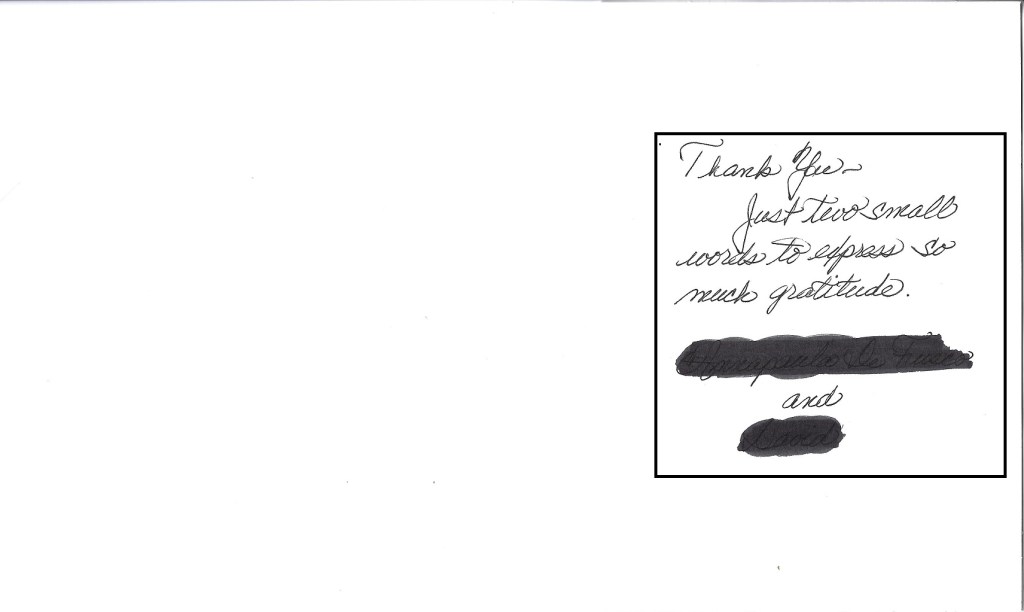 Thank You~
Just two small
words to express so
much gratitude.
and